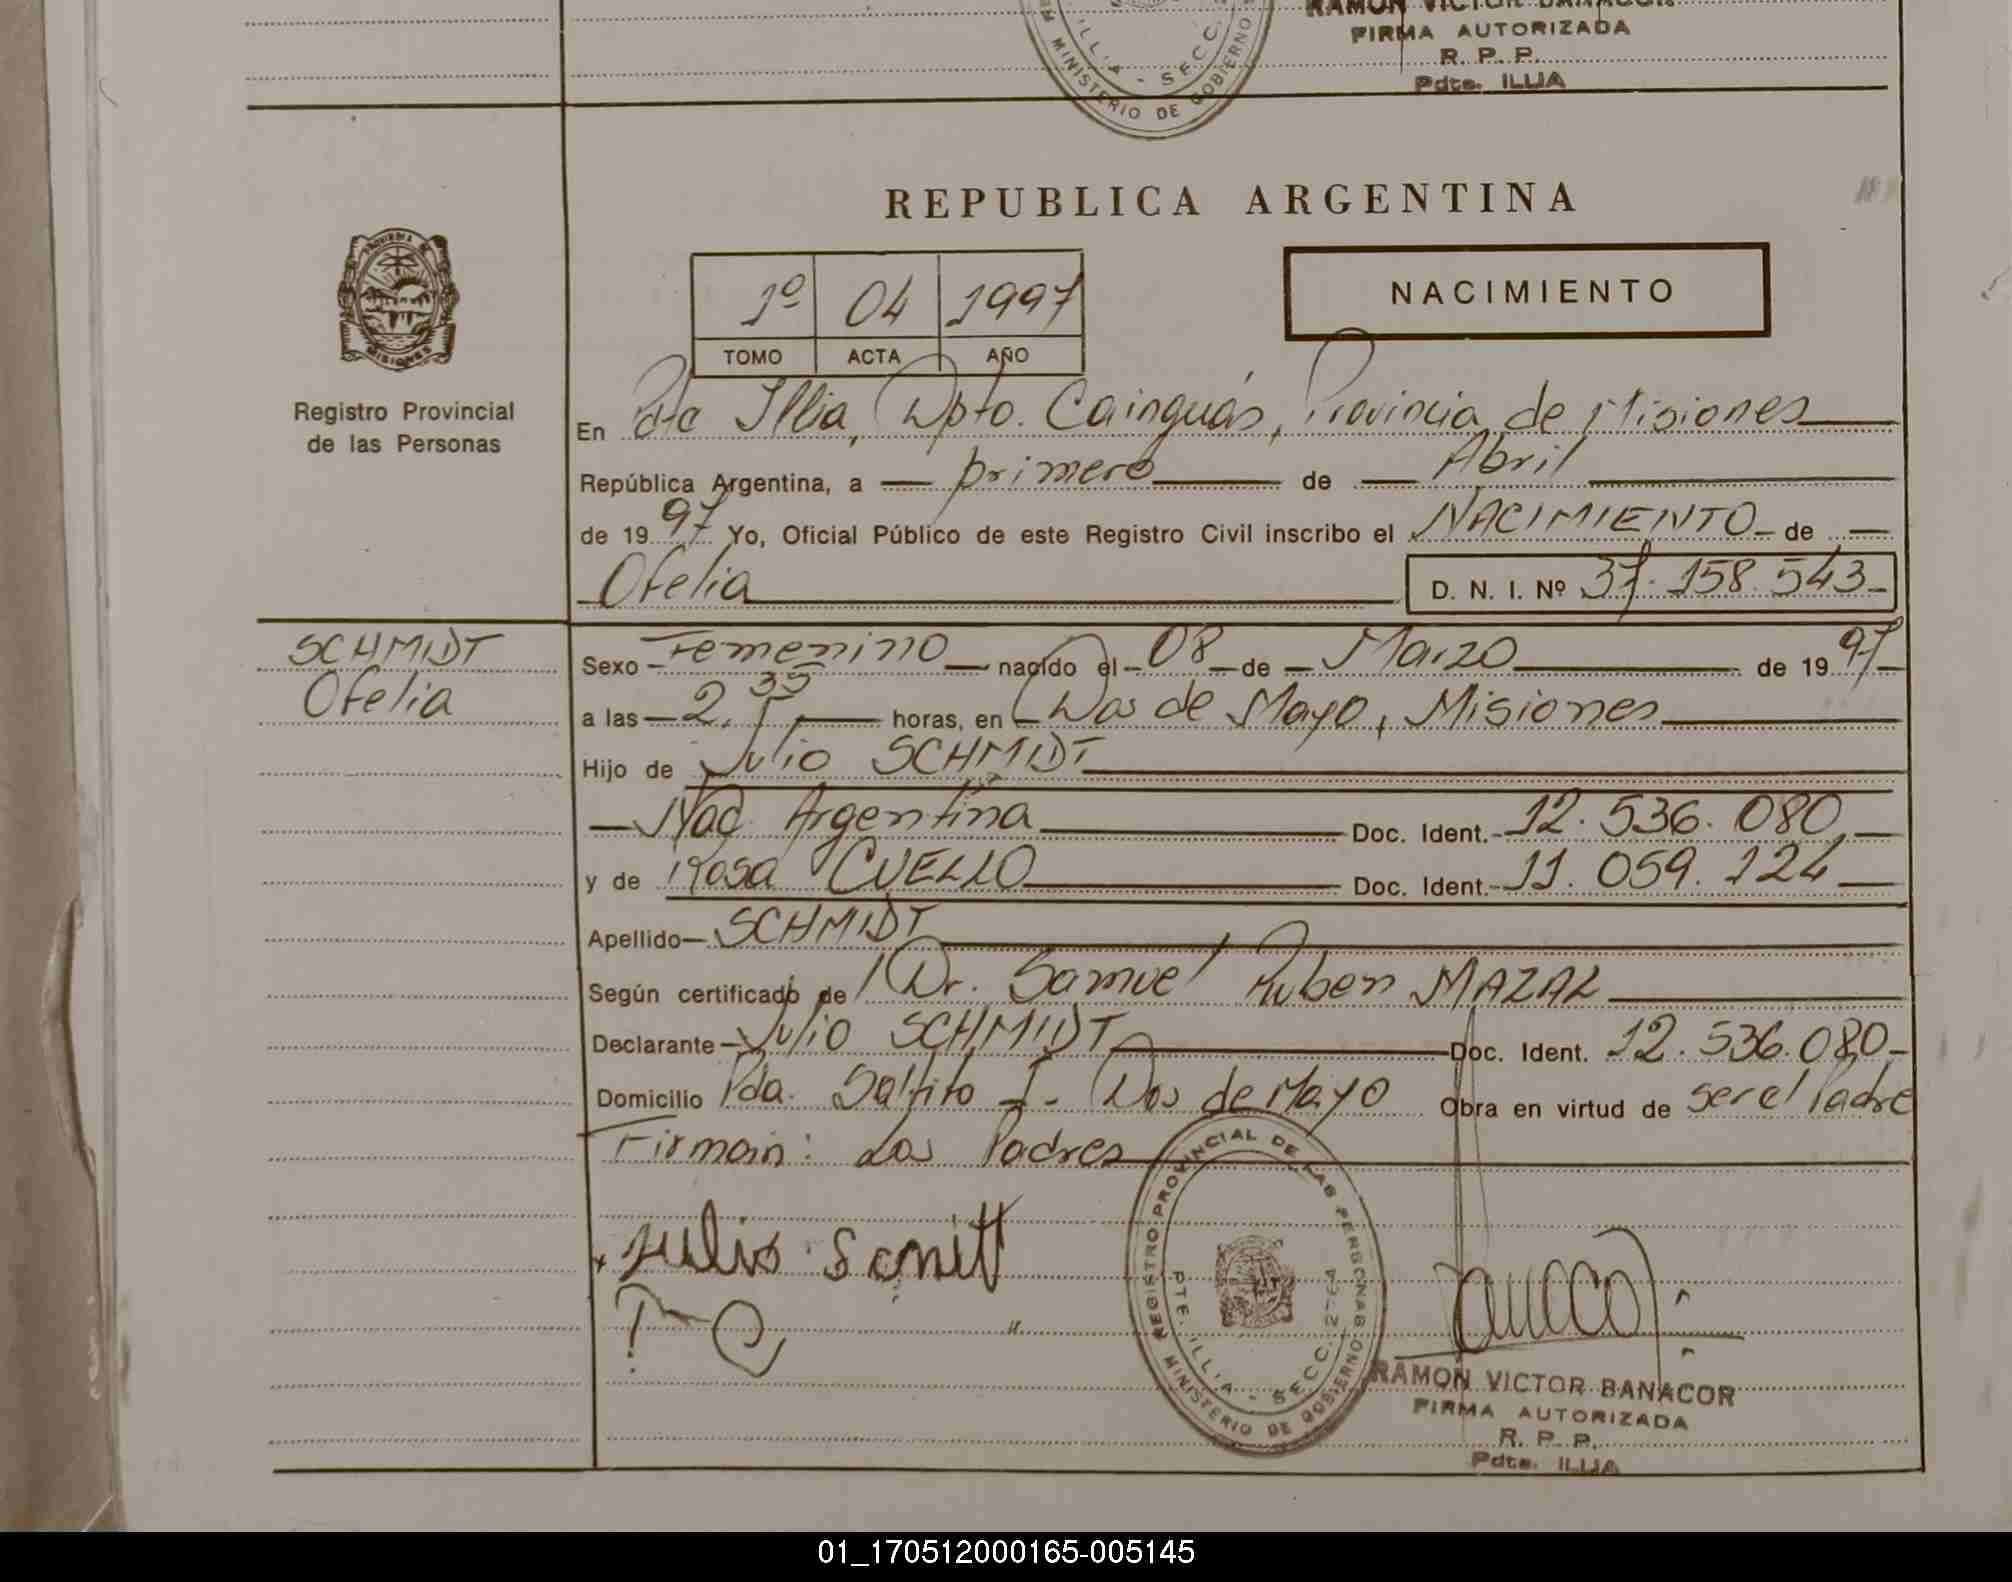 RAMON VICTOR BANACOR
FIRMA AUTORIZADA
R. P. P.
Pdte. ILLIA
ILLIA - SECC.
MINISTERIO DE GOBIERNO
REPUBLICA ARGENTINA
1º 04 1997
TOMO ACTA AÑO
NACIMIENTO
PROVINCIA DE
MISIONES
Registro Provincial
de las Personas
En Pdte Illia, Dpto. Cainguás, Provincia de Misiones
República Argentina, a primero de Abril
de 1997 Yo, Oficial Público de este Registro Civil inscribo el NACIMIENTO de
Ofelia D. N. I. Nº 37.158.543
SCHMIDT
Ofelia
Sexo Femenino nacido el 08 de Marzo de 1997
a las 2,35 horas, en Dos de Mayo, Misiones
Hijo de Julio SCHMIDT
Nac. Argentina Doc. Ident. 12.536.080
y de Rosa CUELLO Doc. Ident. 11.059.124
Apellido SCHMIDT
Según certificado de Dr. Samuel Ruben MAZAL
Declarante Julio SCHMIDT Doc. Ident. 12.536.080
Domicilio Pda. Saltito I - Dos de Mayo Obra en virtud de ser el Padre
Firman: Los Padres
Julio Scmitt
R C
REGISTRO PROVINCIAL DE LAS PERSONAS
PTE. ILLIA - SECC. 2764
MINISTERIO DE GOBIERNO
RAMON VICTOR BANACOR
FIRMA AUTORIZADA
R. P. P.
Pdte. ILLIA
01_170512000165-005145